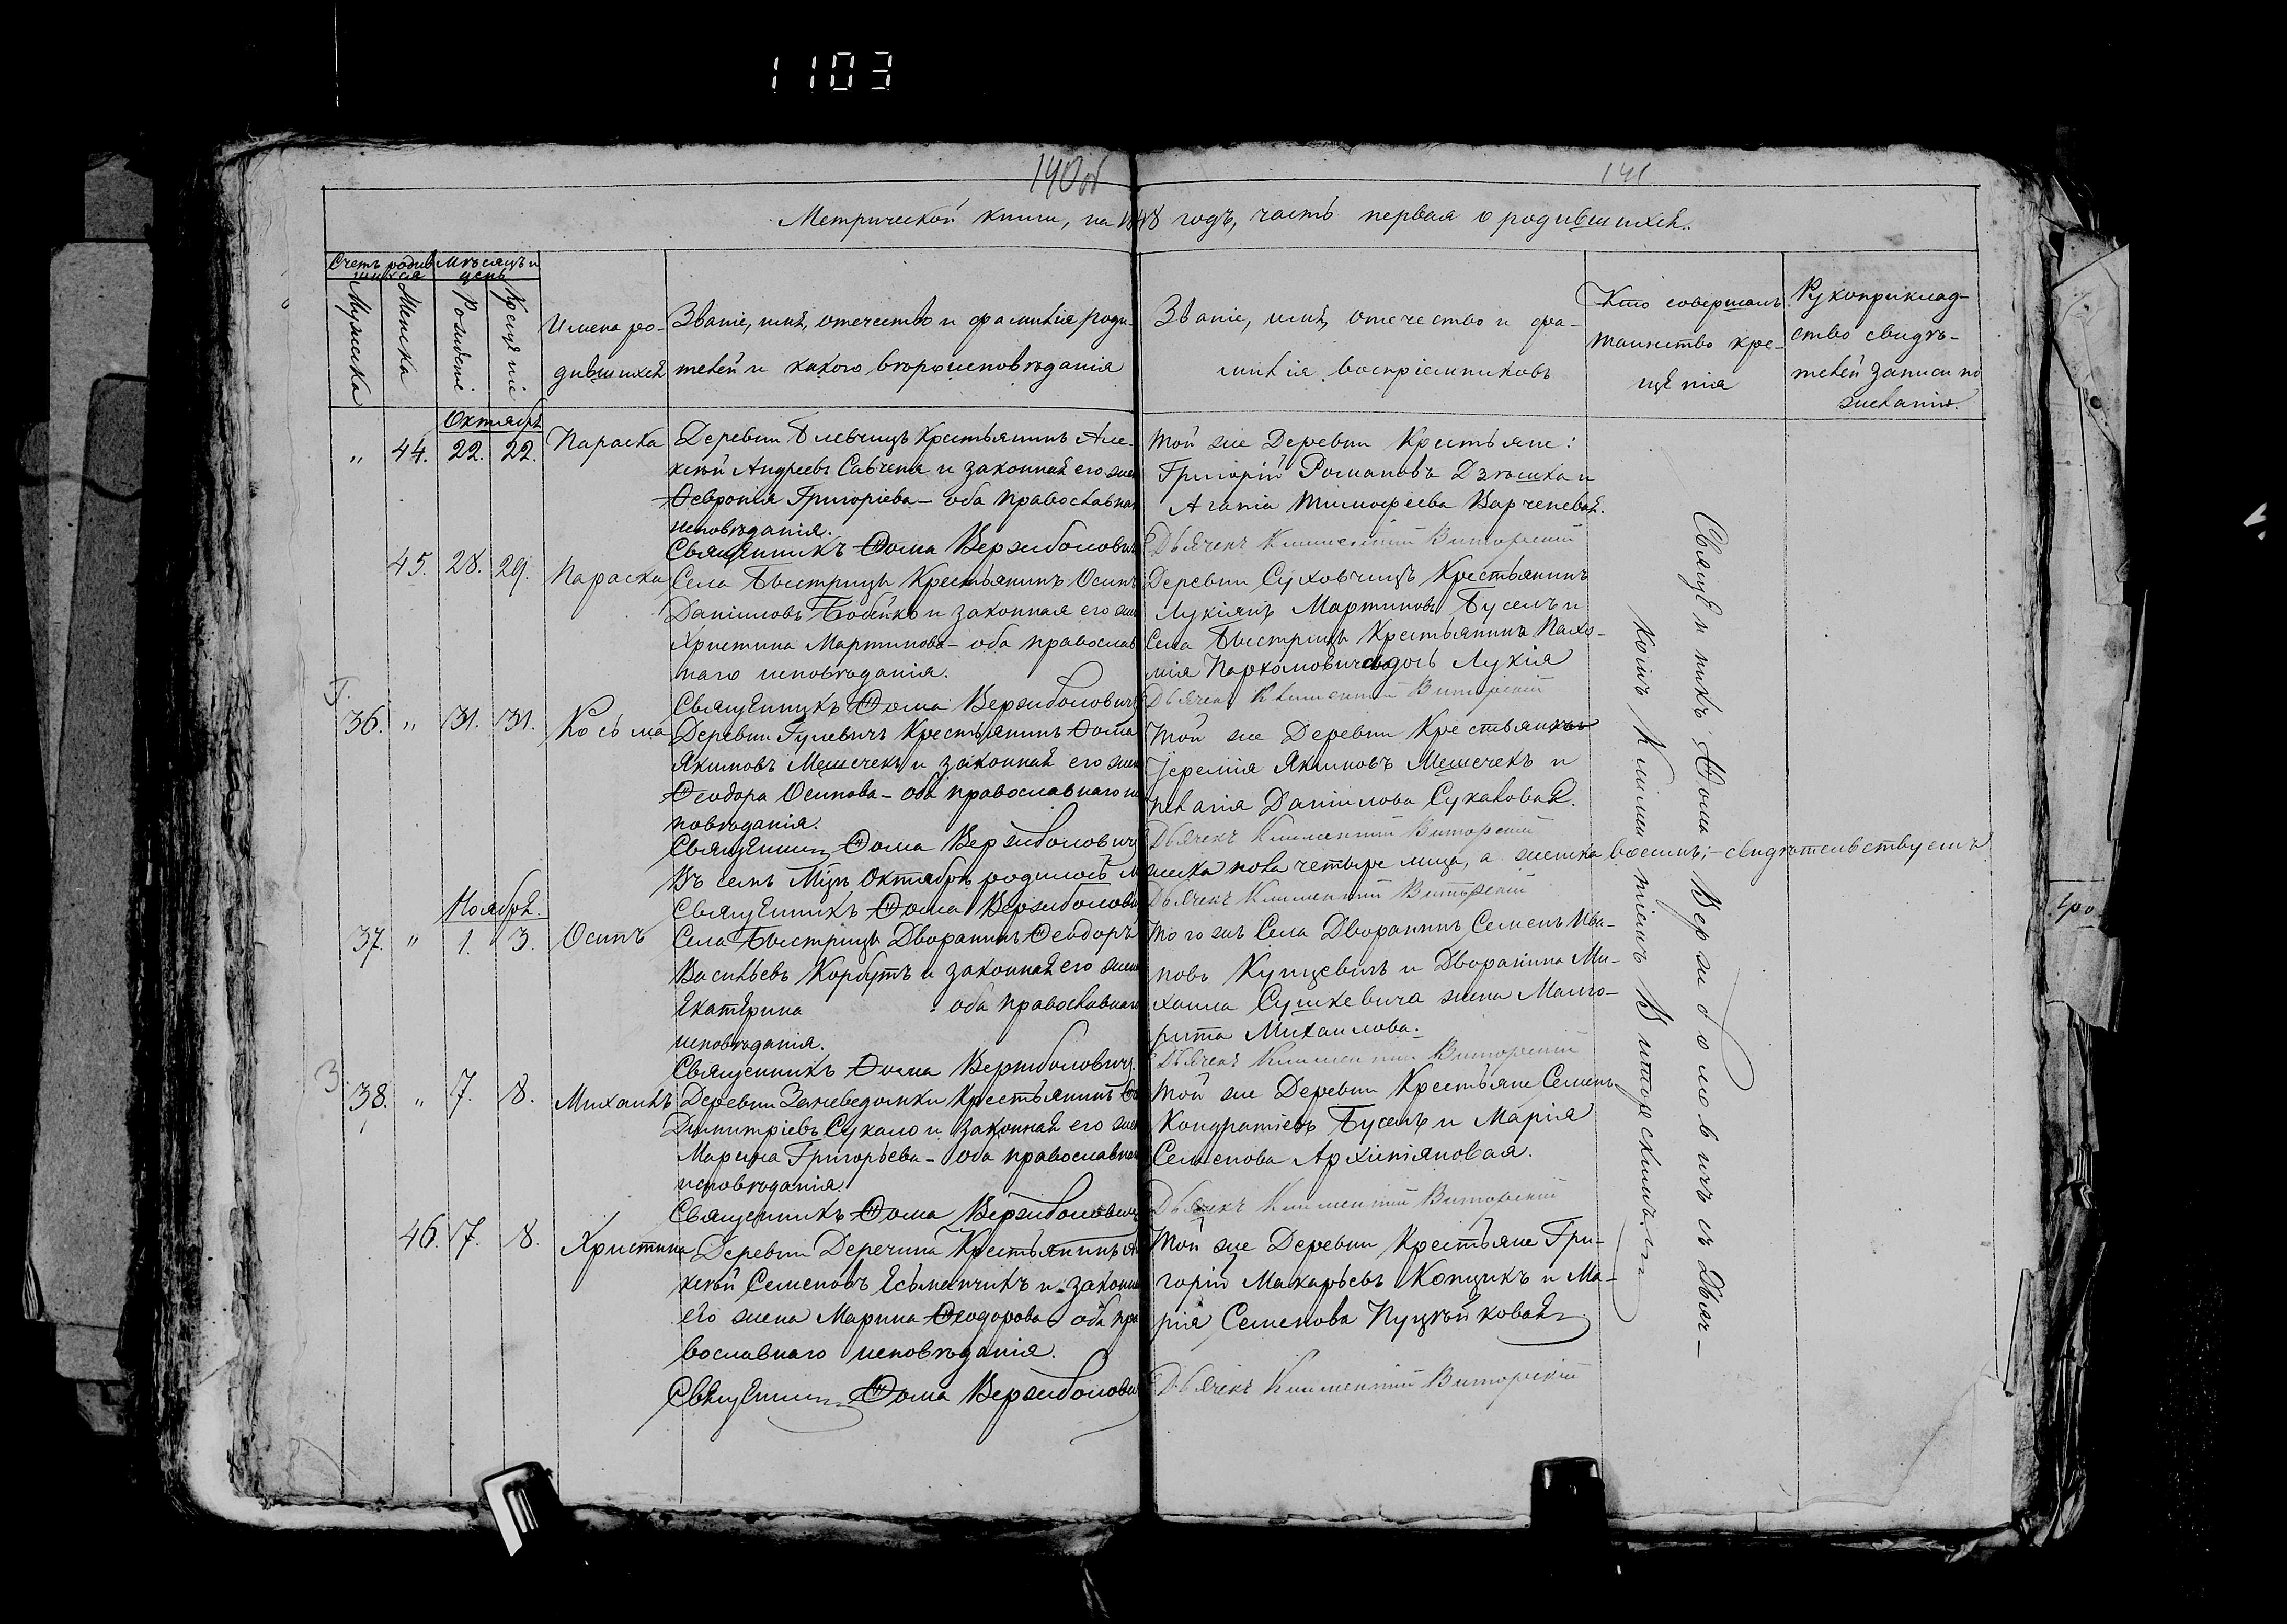 1103
140 об
141
Метрической книги, на 1848 годъ, часть первая о родившихся.
Счетъ родив
шихся
Мѣсяцъ и
день
Мужеска
Женска
Рожденіе
Крещеніе
Имена ро-
дившихся
Званіе, имя, отечество и фамилія роди-
телей и какого вѣроисповѣданія
Званіе, имя, отечество и фа-
милія воспріемниковъ
Кто совершалъ
таинство кре-
щенія
Рукоприклад-
ство свидѣ-
телей записи по
желанію.
Октябрь
„ 44. 22. 22. Параска
Деревни Блевчицъ Крестьянинъ Але-
ксѣй Андреевъ Савченя и законная его жен
Ѳевронія Григоріева – оба православна
исповѣданія.
Той же Деревни Крестьяне:
Григорій Романовъ Дзѣшка и
Агапія Тимофеева Варченевая.
Священникъ Ѳома Вержболович
Дьячекъ Климентій Виторскій
45. 28. 29. Параска
Села Быстрицы Крестьянинъ Осипъ
Даніиловъ Бобйко и законная его жен
Христина Мартинова – оба православ
наго исповѣданія.
Деревни Суховчицъ Крестьянинъ
Лукіянъ Мартиновъ Буселъ и
Села Быстрицы Крестьянина Пахо-
мія Пархомовича дочь Лукія
Священникъ Ѳома Вержболович
Дьячекъ Климентій Виторскій
36. „ 31. 31. Косьма
Деревни Гулевичъ Крестьянинъ Ѳома
Якимовъ Мешечекъ и законная его жен
Ѳеодора Осипова – оба православнаго ис
повѣданія.
Той же Деревни Крестьян
Іеремія Якимовъ Мешечекъ и
Пелагія Даніилова Сукаловая.
Священникъ Ѳома Вержболович
Дьячекъ Климентій Виторскій
Въ семъ Мцѣ Октябрѣ родилось м
жеска пола четыре лица, а женска восемь; – свидѣтельствуемъ
Священникъ Ѳома Вержболови
Дьячекъ Климентій Виторскій
Ноябрь.
37. „ 1. 3. Осипъ
Села Быстрицы Дворанинъ Ѳеодоръ
Васильевъ Корбутъ и законная его жен
Екатерина оба православнаго
исповѣданія.
Того жъ Села Дворанинъ Семенъ Ива-
новъ Купцевичъ и Дворанина Ми-
хаила Сушкевича жена Малго-
рита Михаилова.
Священникъ Ѳома Вержболович
Дьячекъ Климентій Виторскій
3
38. „ 7. 8. Михаилъ
Деревни Заневедомки Крестьянинъ
Димитріевъ Сукало и законная его жен
Марина Григорьева – оба православна
исповѣданія.
Той же Деревни Крестьяне Семенъ
Кондратіевъ Буселъ и Марія
Семенова Архипіяновая.
Священникъ Ѳома Вержболович
Дьячекъ Климентій Виторскій
46. 7. 8. Христина
Деревни Деречина Крестьянинъ Ал
ксѣй Семеновъ Есьменчикъ и законн
его жена Марина Ѳеодорова оба пра
вославнаго исповѣданія.
Той же Деревни Крестьяне Гри-
горій Макарьевъ Копцикъ и Ма-
рія Семенова Пуцѣйковая
Священникъ Ѳома Вержболови
Дьячекъ Климентій Виторскій
Священникъ Ѳома Вержболовичъ съ Дьяч-
комъ Климентіемъ Виторскимъ